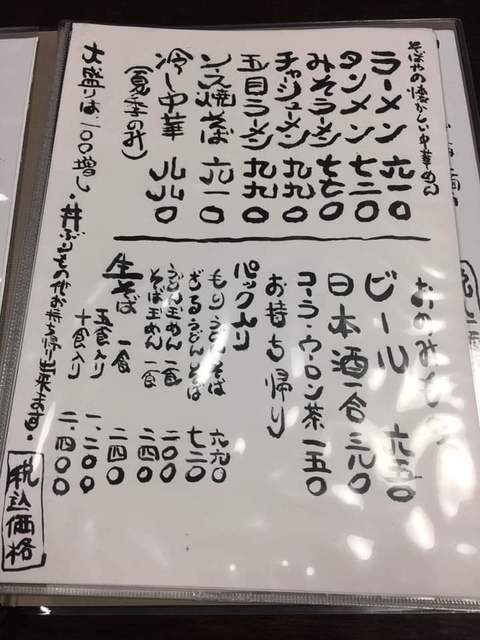 そばやの懐かしい中華めん
ラーメン 六一〇
タンメン 七二〇
みそラーメン 七七〇
チャシューメン 九九〇
五目ラーメン 九九〇
ソース焼そば 六一〇
冷し中華 八八〇
(夏季のみ)
大盛りは一〇〇増し・丼ぶりもの他お持ち帰り出来ます。
おのみもの
ビール 六五〇
日本酒一合 三九〇
コーラ・ウーロン茶 一五〇
お持ち帰り
パック入り
もりうどんそば 六六〇
ざるうどんそば 七二〇
うどん玉めん 一食 二〇〇
そば玉めん 一食 二四〇
生そば
一食 二四〇
五食入り 一、二〇〇
十食入り 二、四〇〇
税込価格